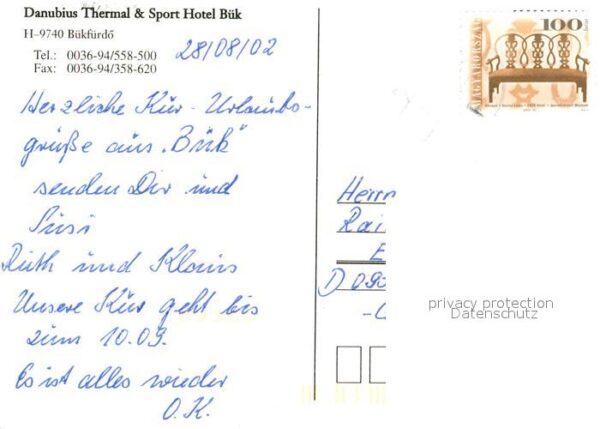 Danubius Thermal & Sport Hotel Bük
H-9740 Bükfürdő
Tel.: 0036-94/558-500
Fax: 0036-94/358-620
28/08/02
Herzliche Kur-Urlaubs-
grüße aus "Bük"
senden Dir und
Susi
Ruth und Klaus
Unsere Kur geht bis
zum 10.09.
Es ist alles wieder
O.K.
100
MAGYARORSZÁG
Herrn
Rai
E
D 090
privacy protection
Datenschutz